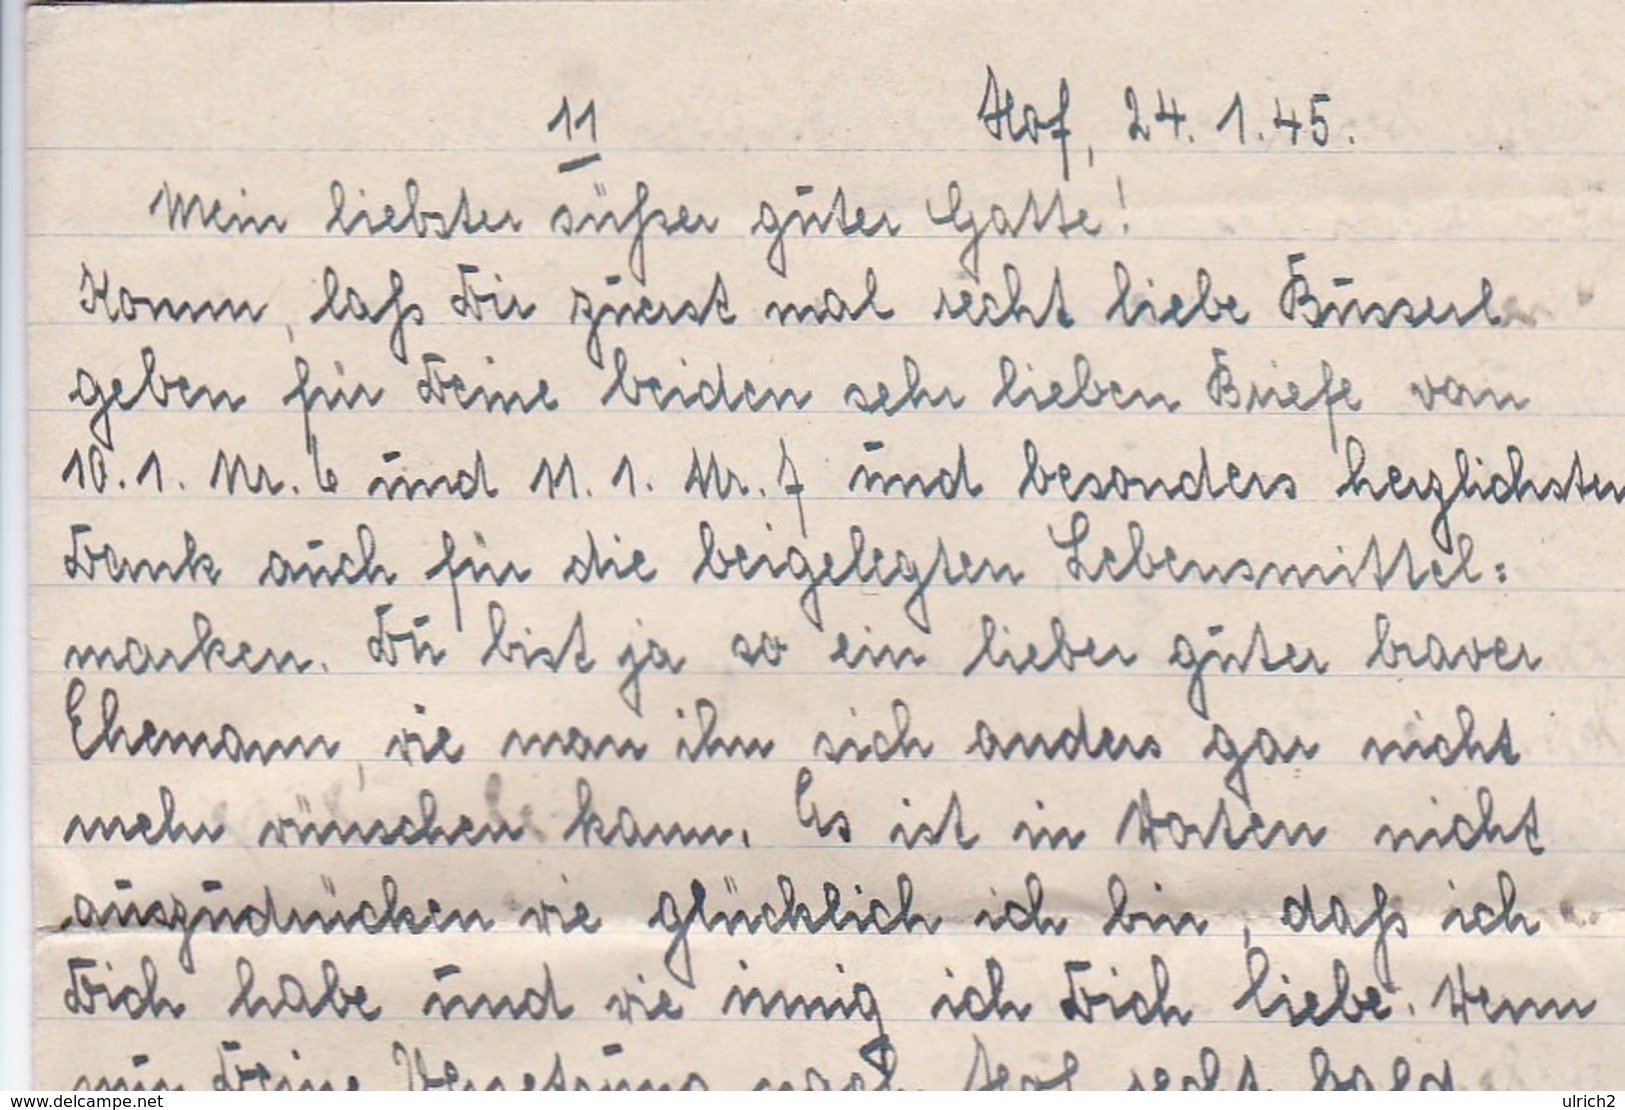 11 Hof, 24.1.45.
Mein liebster süßer guter Gatte!
Komm, laß Dir zuerst mal recht liebe Busserl
geben für Deine beiden sehr lieben Briefe vom
10.1. Nr. 6 und 11.1. Nr. 7 und besonders herzlichsten
Dank auch für die beigelegten Lebensmittel=
marken. Du bist ja so ein lieber guter braver
Ehemann, wie man ihn sich anders gar nicht
mehr wünschen kann. Es ist in Worten nicht
auszudrücken wie glücklich ich bin, daß ich
Dich habe und wie innig ich Dich liebe. Wenn
nur Deine Versetzung nach Hof recht bald
www.delcampe.net ulrich2